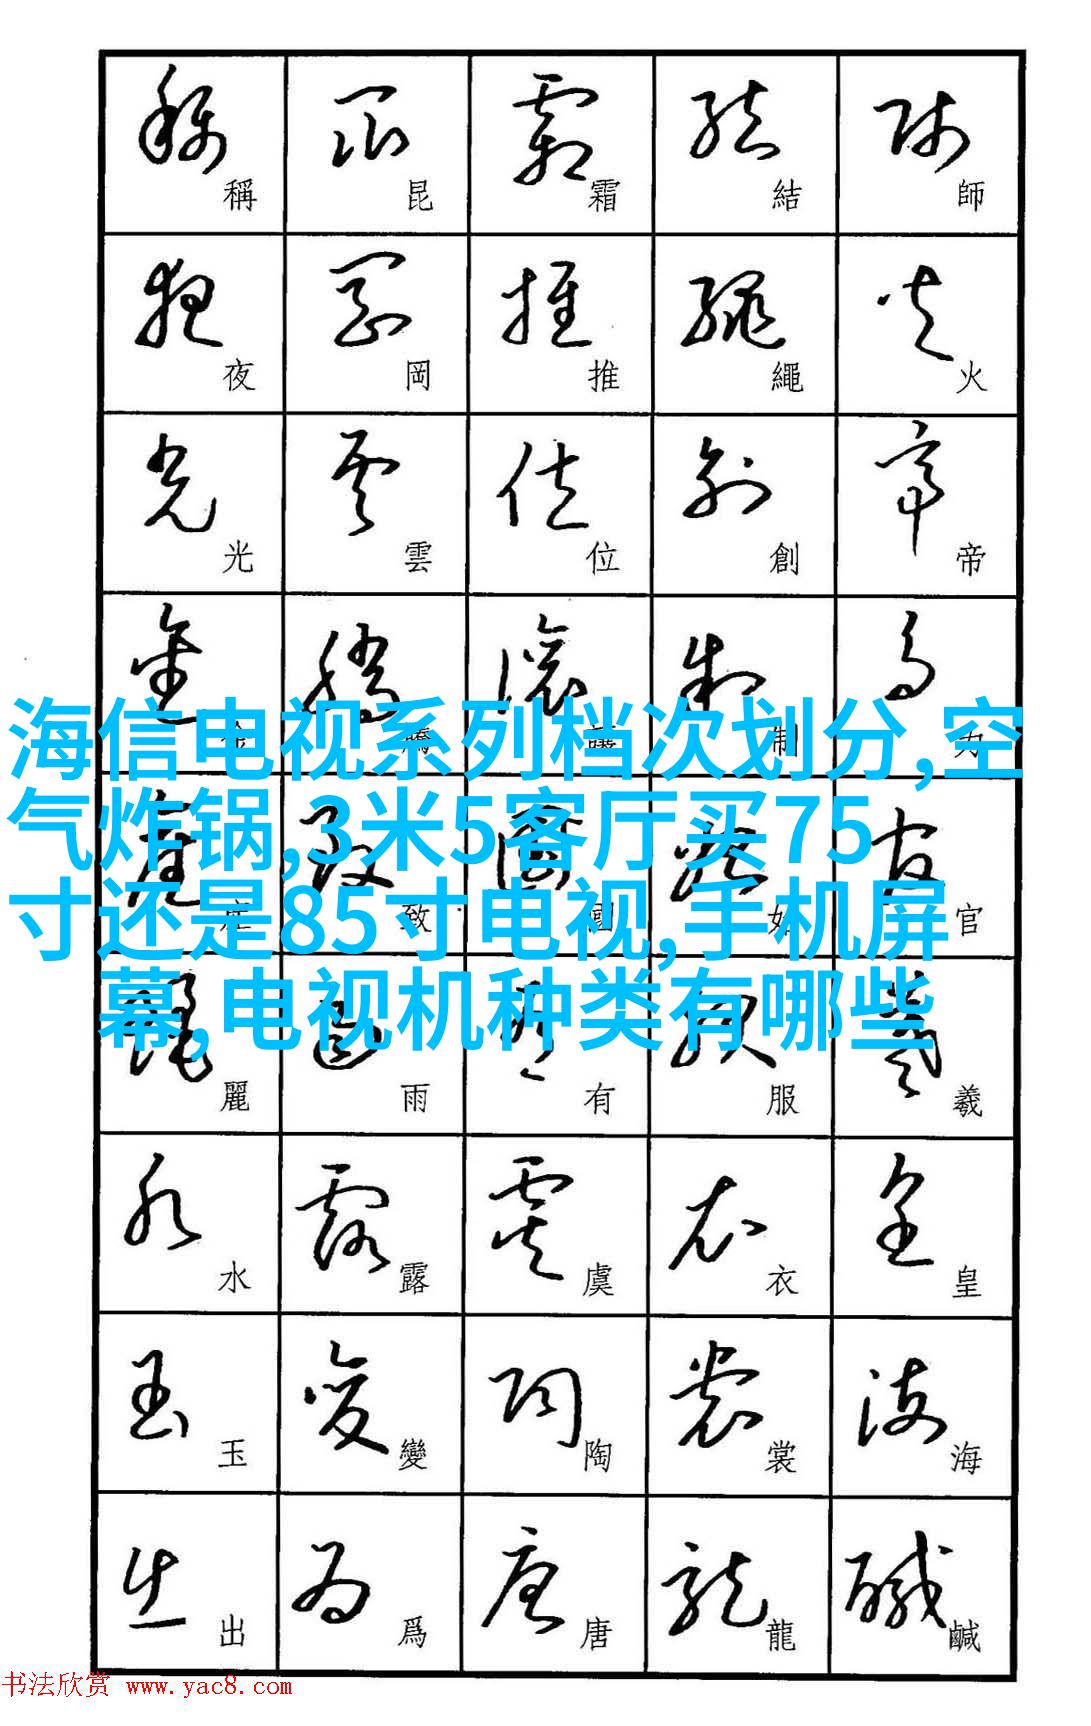 稱 昆 霜 結 師
夜 岡 推 繩 火
光 雲 位 創 帝
金 騰 讓 制
海信电视系列档次划分,空
气炸锅,3米5客厅买75
寸还是85寸电视,手机屏
幕,电视机种类有哪些
致 國 如 官
麗 雨 有 服 羲
水 露 虞 衣 皇
玉 變 陶 裳 海
出 爲 唐 龍 鹹
书法欣赏 www.yac8.com